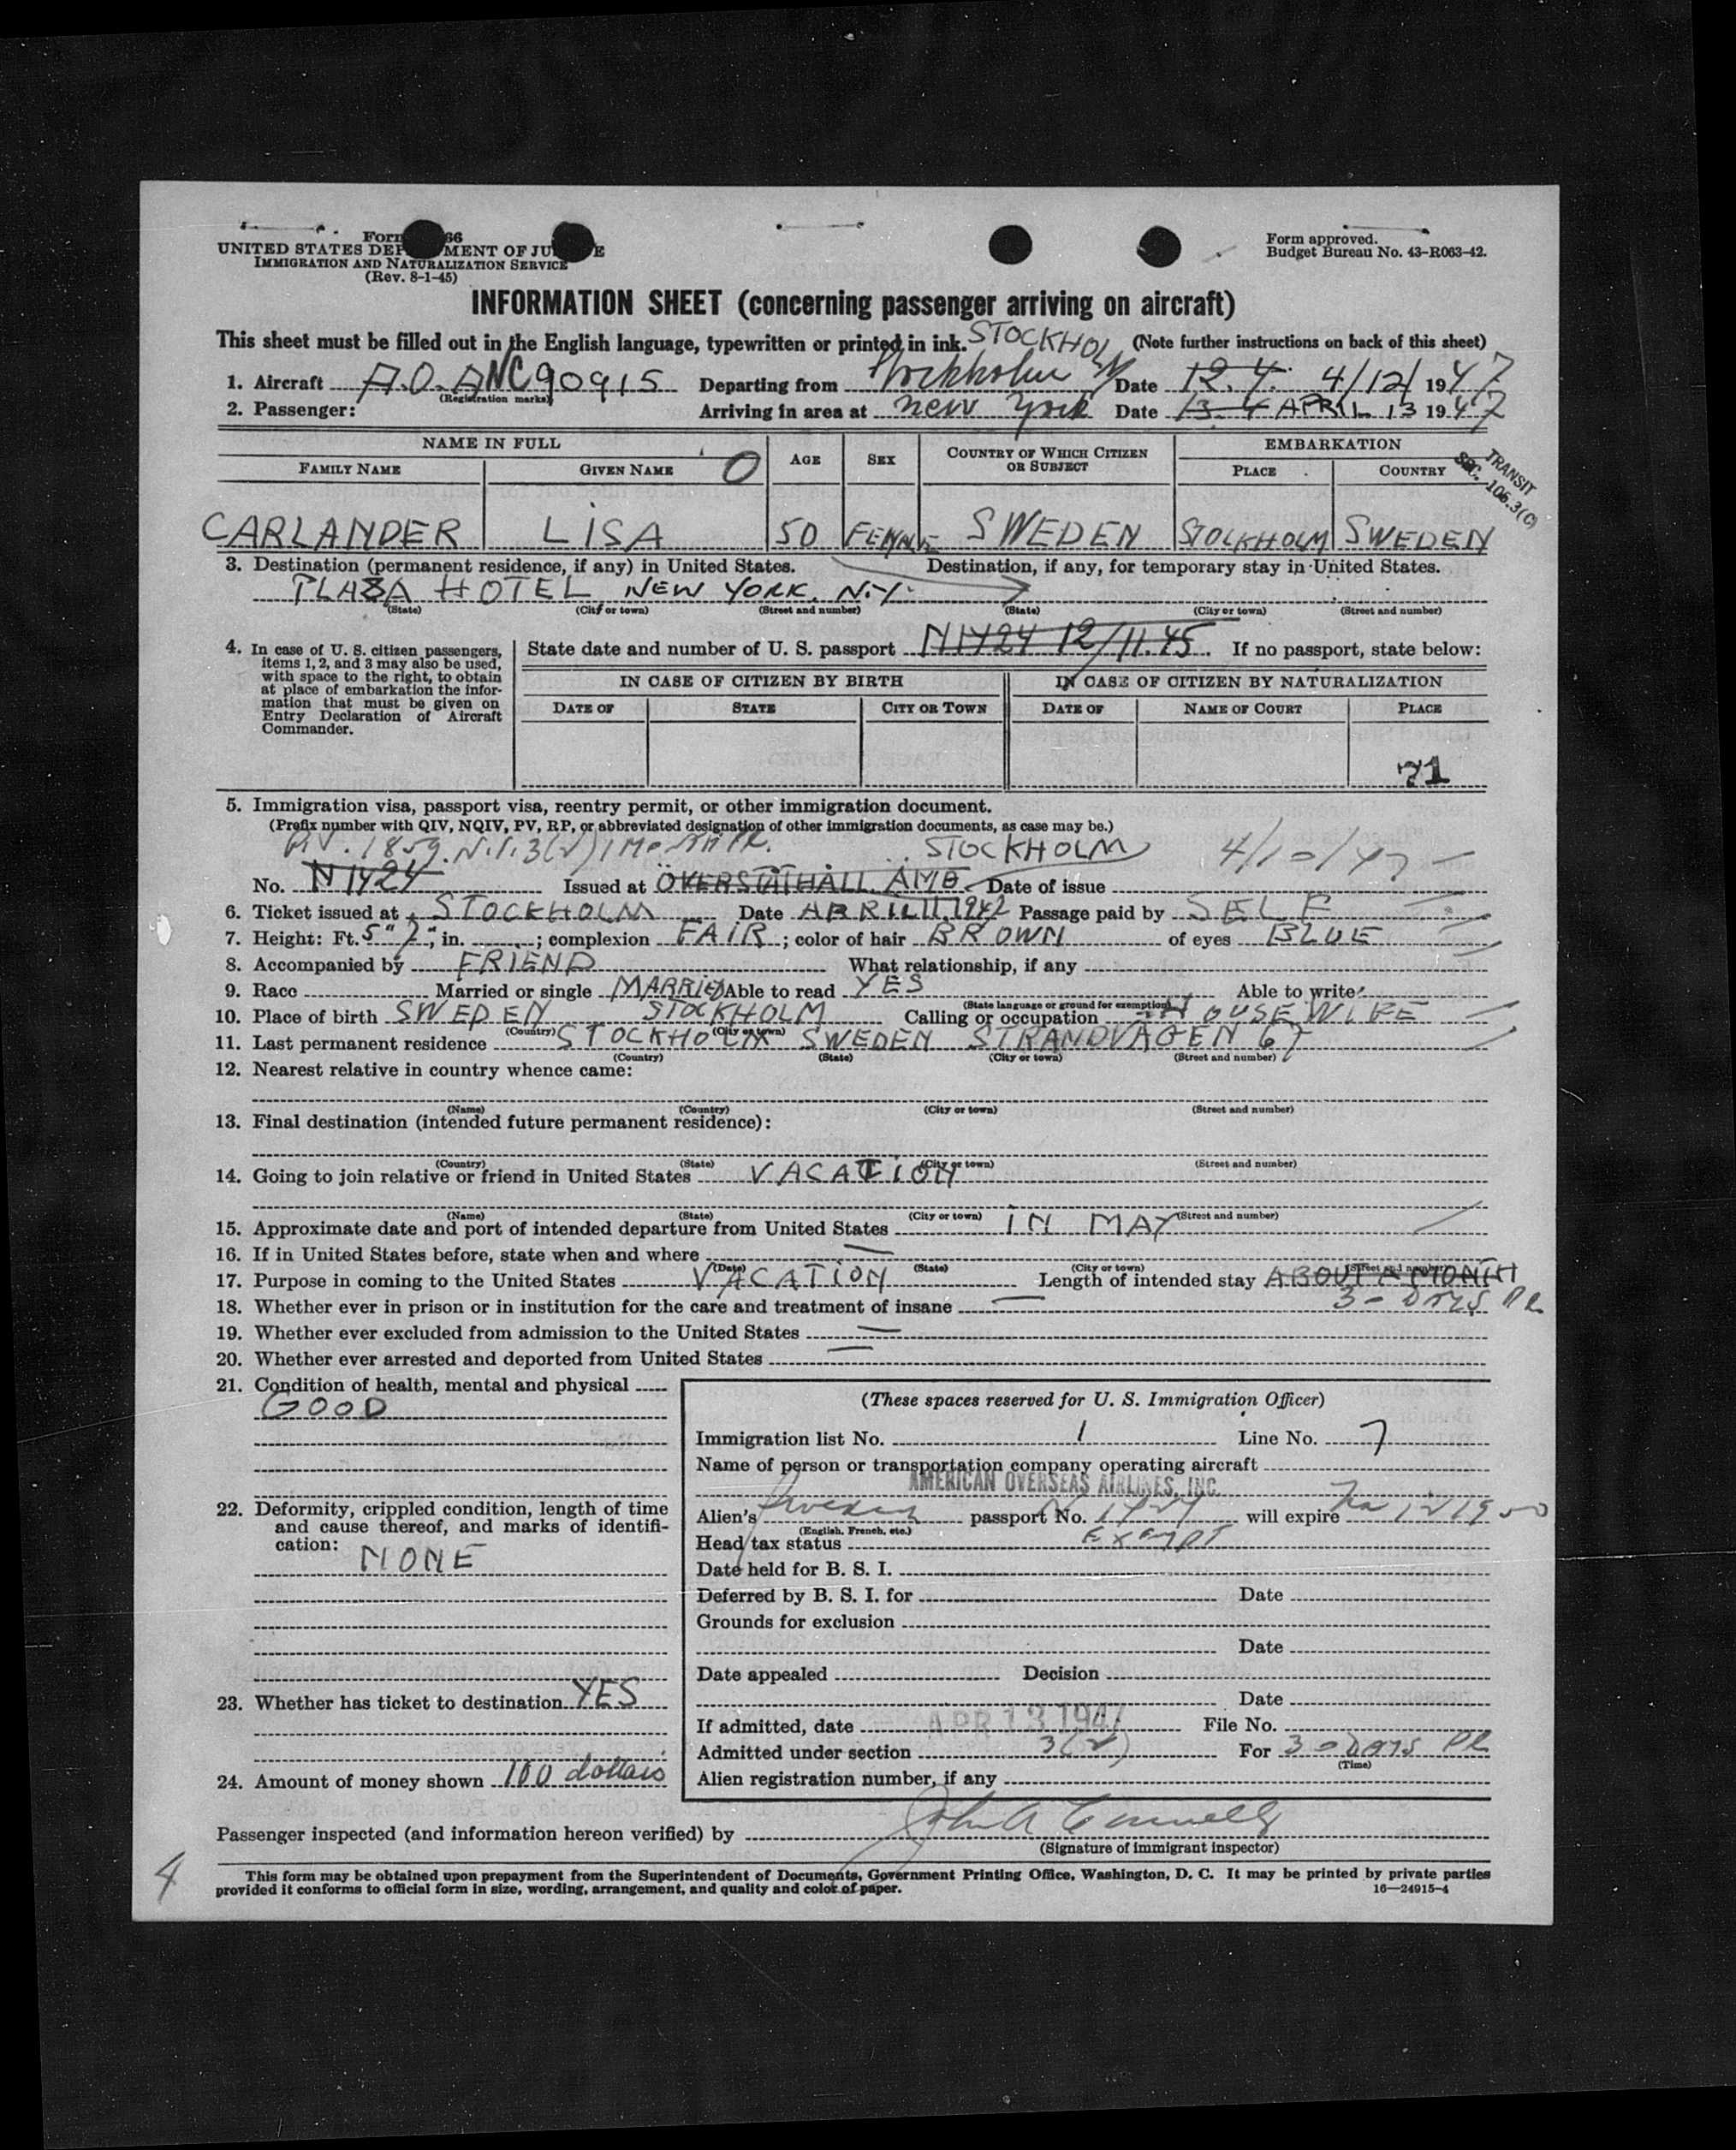 Form 66
UNITED STATES DEP MENT OF JU E
IMMIGRATION AND NATURALIZATION SERVICE
(Rev. 8-1-45)
Form approved.
Budget Bureau No. 43-R063-42.
INFORMATION SHEET (concerning passenger arriving on aircraft)
This sheet must be filled out in the English language, typewritten or printed in ink. STOCKHOLM (Note further instructions on back of this sheet)
1. Aircraft A.O.A NC90915 Departing from Stockholm Date 12.4. 4/12/ 1947
(Registration marks)
2. Passenger: Arriving in area at new york Date 13.4 APRIL 13 1947
NAME IN FULL AGE SEX COUNTRY OF WHICH CITIZEN OR SUBJECT EMBARKATION
FAMILY NAME GIVEN NAME 0 PLACE COUNTRY
TRANSIT
SEC. 106.3(C)
CARLANDER LISA 50 FEMALE SWEDEN STOCKHOLM SWEDEN
3. Destination (permanent residence, if any) in United States. Destination, if any, for temporary stay in United States.
PLAZA HOTEL NEW YORK. N.Y.
(State) (City or town) (Street and number) (State) (City or town) (Street and number)
4. In case of U. S. citizen passengers, items 1, 2, and 3 may also be used, with space to the right, to obtain at place of embarkation the information that must be given on Entry Declaration of Aircraft Commander.
State date and number of U. S. passport N1424 12/11.45. If no passport, state below:
IN CASE OF CITIZEN BY BIRTH IN CASE OF CITIZEN BY NATURALIZATION
DATE OF STATE CITY OR TOWN DATE OF NAME OF COURT PLACE
71
5. Immigration visa, passport visa, reentry permit, or other immigration document.
(Prefix number with QIV, NQIV, PV, RP, or abbreviated designation of other immigration documents, as case may be.)
PV. 1859. 3(2) 1 STOCKHOLM 4/10/47
No. N 1424 Issued at ÖVERSTÅTHÅLL. AMB. Date of issue
6. Ticket issued at STOCKHOLM Date APRIL 11.1947 Passage paid by SELF
7. Height: Ft. 5"7", in. ; complexion FAIR ; color of hair BROWN of eyes BLUE
8. Accompanied by FRIEND What relationship, if any
9. Race Married or single MARRIED Able to read YES Able to write
(State language or ground for exemption)
10. Place of birth SWEDEN STOCKHOLM Calling or occupation HOUSEWIFE
(Country) (City or town)
11. Last permanent residence STOCKHOLM SWEDEN STRANDVÄGEN 67
(Country) (State) (City or town) (Street and number)
12. Nearest relative in country whence came:
(Name) (Country) (City or town) (Street and number)
13. Final destination (intended future permanent residence):
(Country) (State) (City or town) (Street and number)
14. Going to join relative or friend in United States VACATION
(Name) (State) (City or town) (Street and number)
15. Approximate date and port of intended departure from United States IN MAY
16. If in United States before, state when and where —
(Date) (State) (City or town) (Street and number)
17. Purpose in coming to the United States VACATION Length of intended stay ABOUT A MONTH
30 DAYS PR
18. Whether ever in prison or in institution for the care and treatment of insane —
19. Whether ever excluded from admission to the United States —
20. Whether ever arrested and deported from United States —
21. Condition of health, mental and physical
GOOD
22. Deformity, crippled condition, length of time and cause thereof, and marks of identification:
NONE
23. Whether has ticket to destination YES
24. Amount of money shown 100 dollars
(These spaces reserved for U. S. Immigration Officer)
Immigration list No. 1 Line No. 7
Name of person or transportation company operating aircraft
AMERICAN OVERSEAS AIRLINES, INC.
Alien's Sweden passport No. N 1424 will expire 12 1950
(English, French, etc.)
Head tax status Exempt
Date held for B. S. I.
Deferred by B. S. I. for Date
Grounds for exclusion
Date
Date appealed Decision
Date
If admitted, date APR 13 1947 File No.
Admitted under section 3(2) For 30 Days PR
(Time)
Alien registration number, if any
Passenger inspected (and information hereon verified) by John A Connelly
(Signature of immigrant inspector)
4
This form may be obtained upon prepayment from the Superintendent of Documents, Government Printing Office, Washington, D. C. It may be printed by private parties
provided it conforms to official form in size, wording, arrangement, and quality and color of paper. 16—24915-4